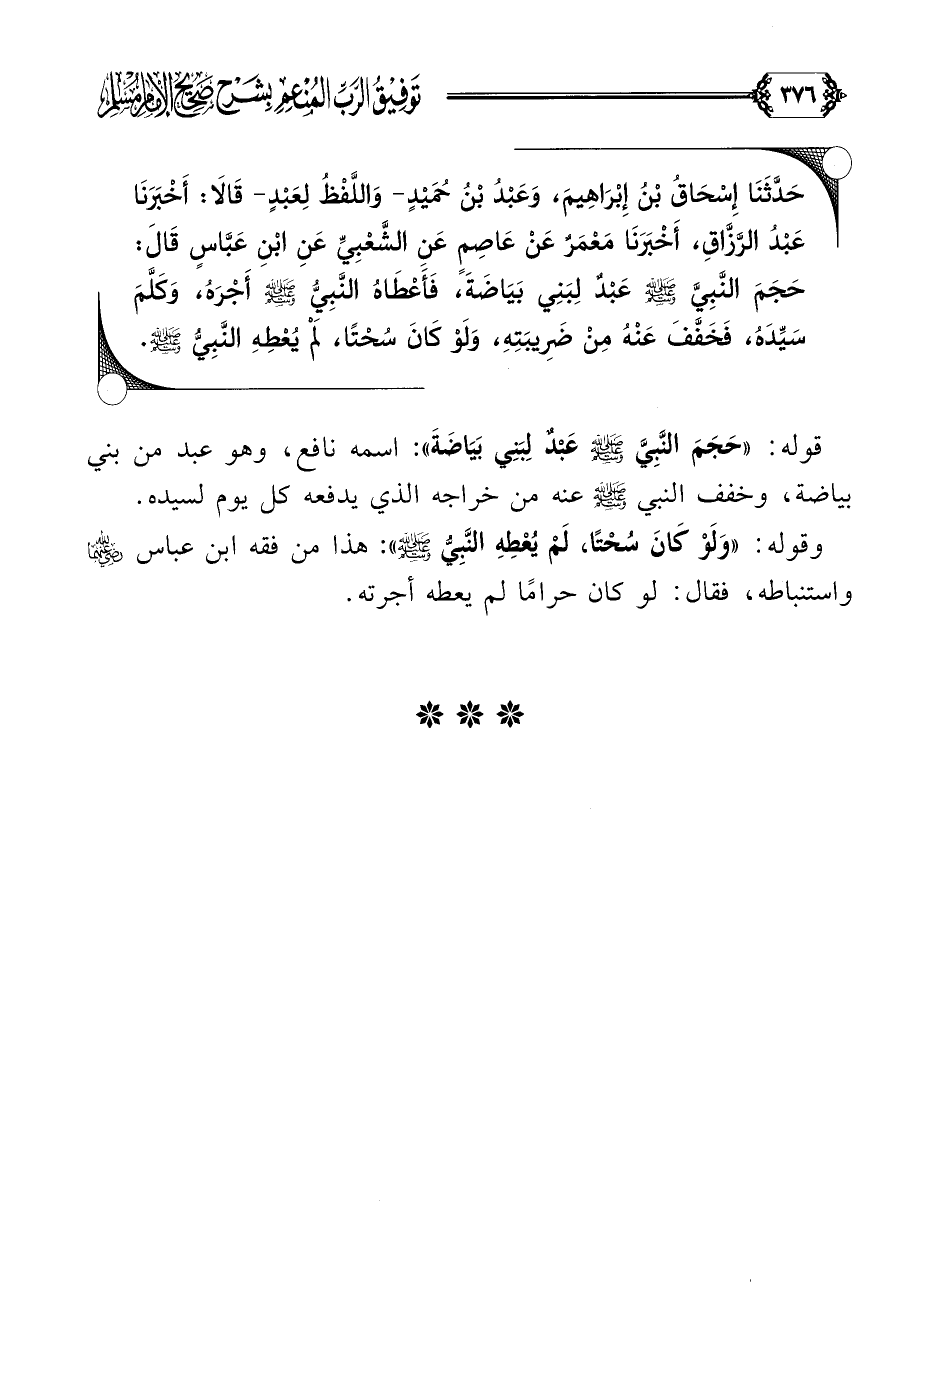 ٣٧٦ توفيق الرب المنعم بشرح صحيح الإمام مسلم
حَدَّثَنَا إِسْحَاقُ بْنُ إِبْرَاهِيمَ، وَعَبْدُ بْنُ حُمَيْدٍ- وَاللَّفْظُ لِعَبْدٍ- قَالَا: أَخْبَرَنَا
عَبْدُ الرَّزَّاقِ، أَخْبَرَنَا مَعْمَرٌ عَنْ عَاصِمٍ عَنِ الشَّعْبِيِّ عَنِ ابْنِ عَبَّاسٍ قَالَ:
حَجَمَ النَّبِيَّ ﷺ عَبْدٌ لِبَنِي بَيَاضَةَ، فَأَعْطَاهُ النَّبِيُّ ﷺ أَجْرَهُ، وَكَلَّمَ
سَيِّدَهُ، فَخَفَّفَ عَنْهُ مِنْ ضَرِيبَتِهِ، وَلَوْ كَانَ سُحْتًا، لَمْ يُعْطِهِ النَّبِيُّ ﷺ.
قوله: «حَجَمَ النَّبِيَّ ﷺ عَبْدٌ لِبَنِي بَيَاضَةَ»: اسمه نافع، وهو عبد من بني
بياضة، وخفف النبي ﷺ عنه من خراجه الذي يدفعه كل يوم لسيده.
وقوله: «وَلَوْ كَانَ سُحْتًا، لَمْ يُعْطِهِ النَّبِيُّ ﷺ»: هذا من فقه ابن عباس رضي الله عنهما
واستنباطه، فقال: لو كان حرامًا لم يعطه أجرته.